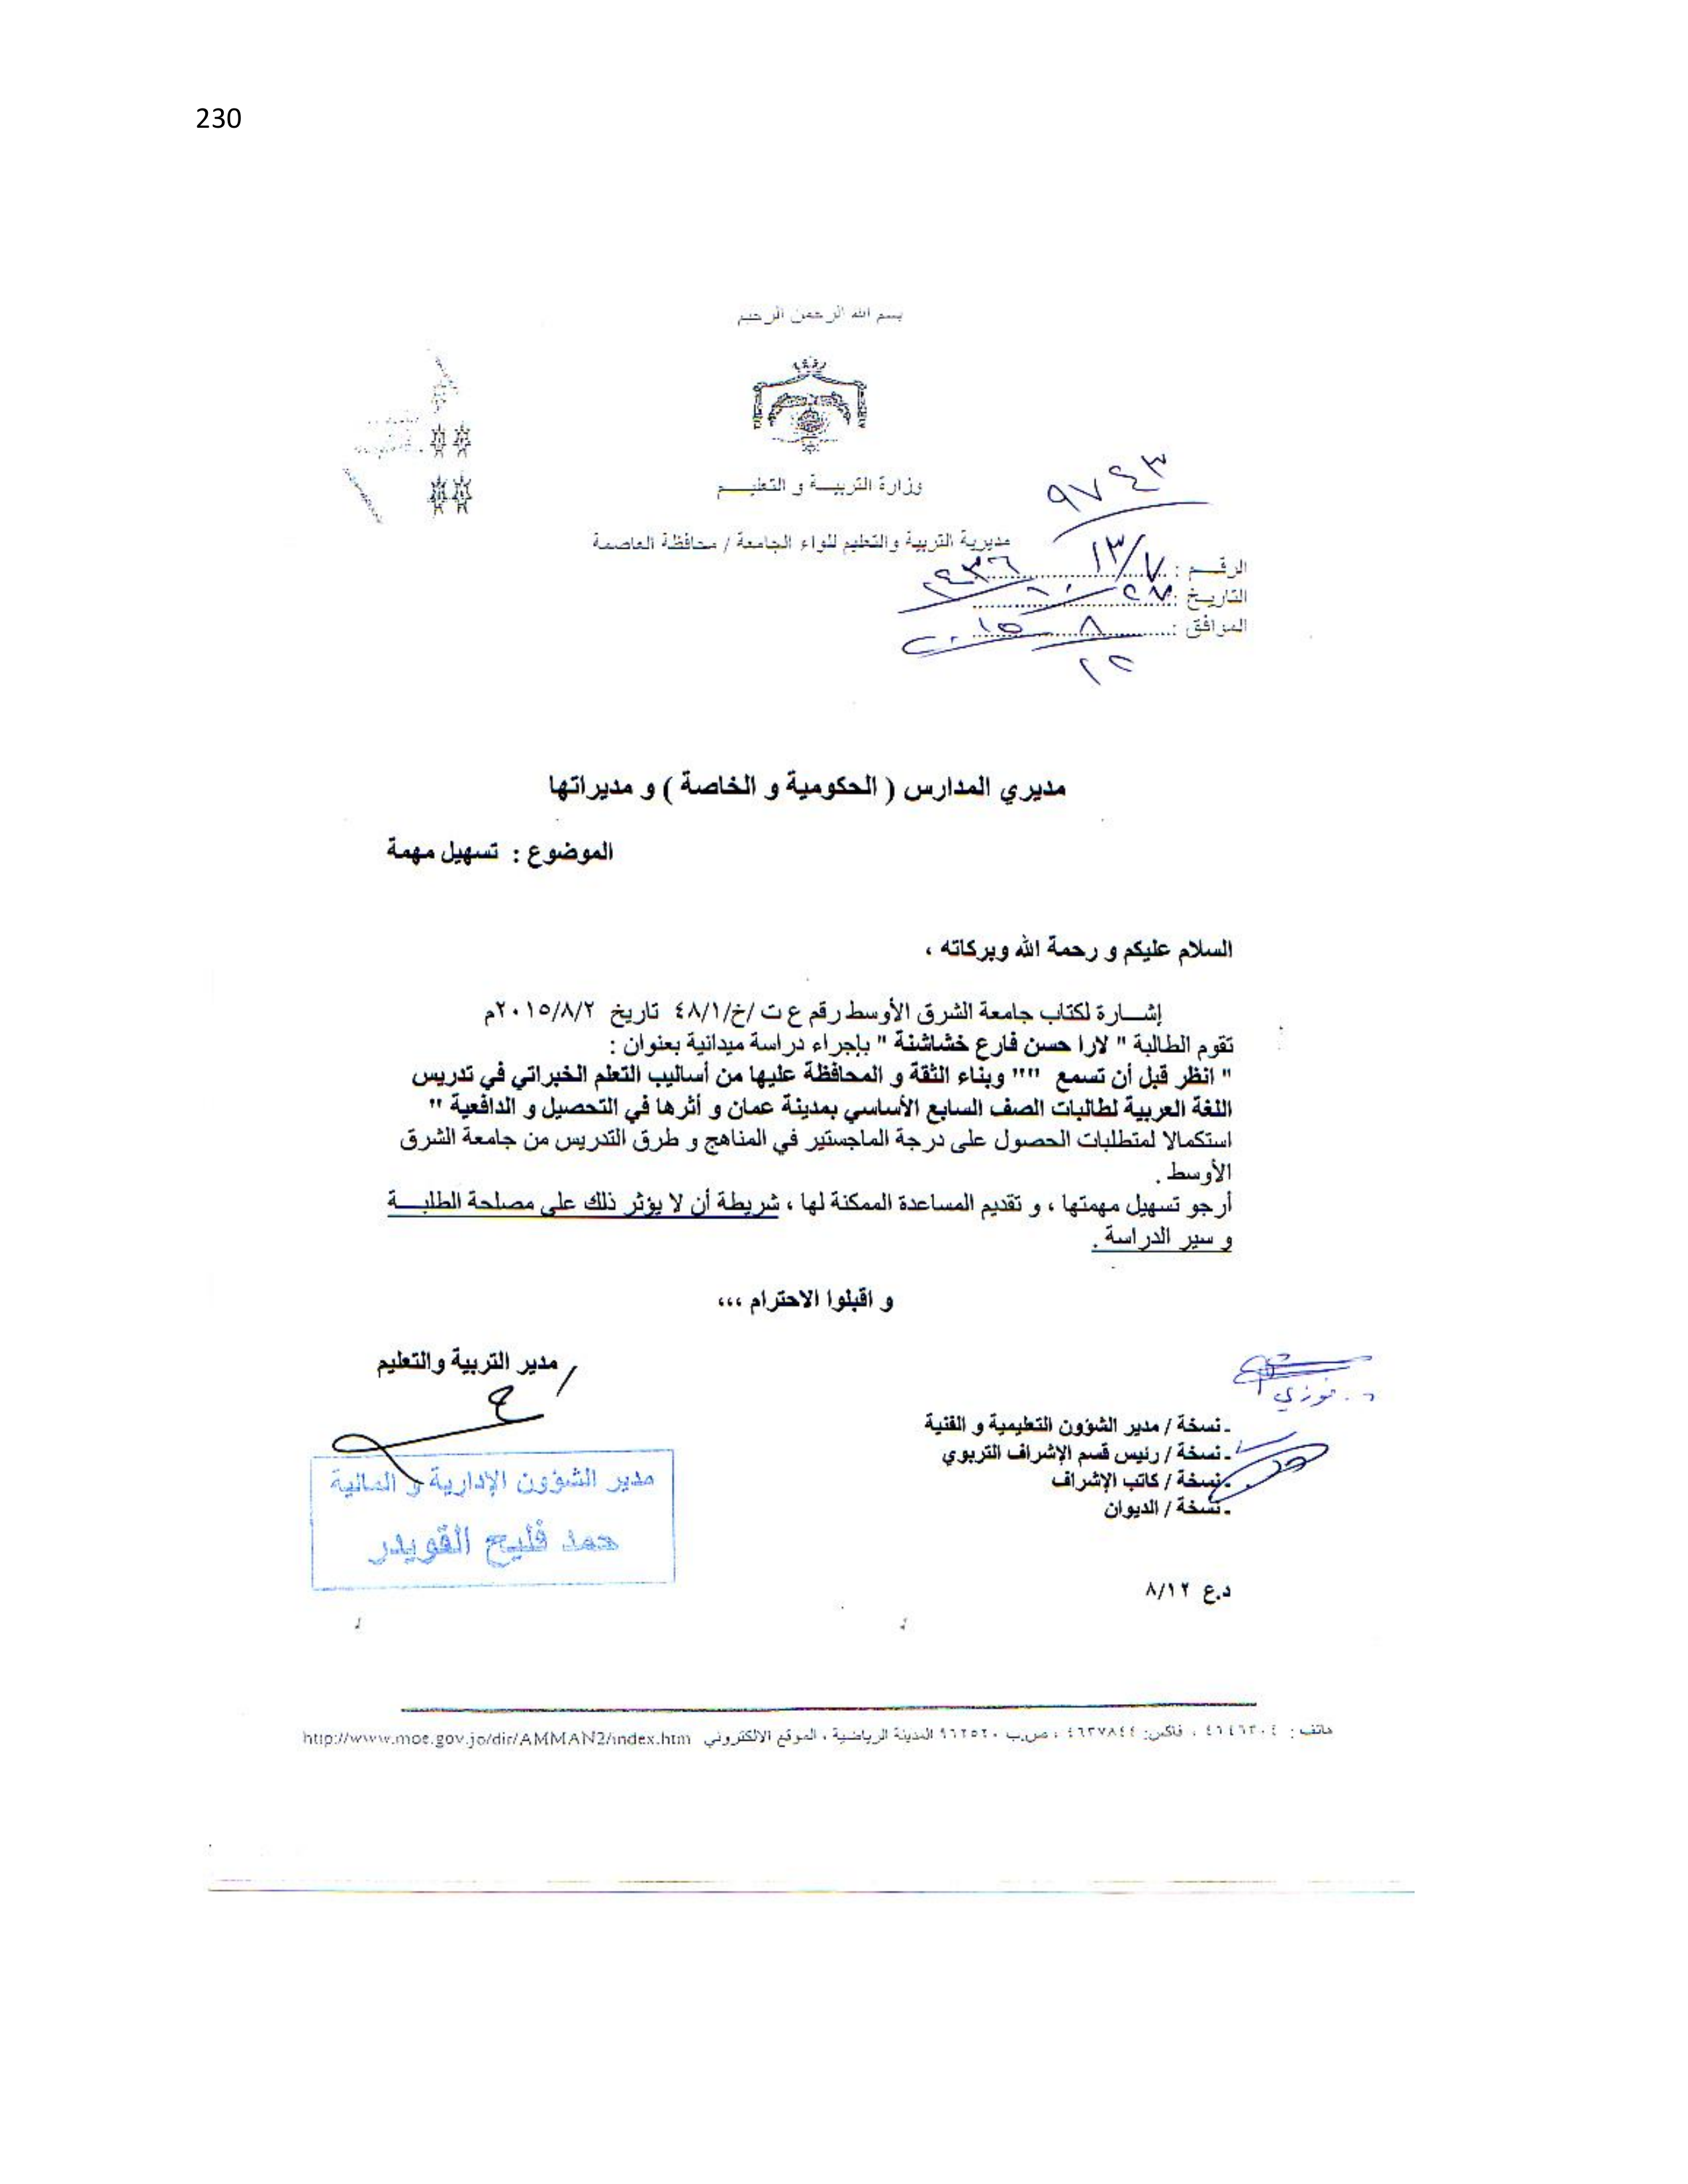 230
بسم الله الرحمن الرحيم
وزارة التربيـــة و التعليــــم
مديرية التربية والتعليم للواء الجامعة / محافظة العاصمة
٩٧٤٣
الرقــم : ١٣/٧
التاريخ : ٢٧
الموافق : ١٢ / ٨ / ٢٠١٥
مديري المدارس ( الحكومية و الخاصة ) و مديراتها
الموضوع : تسهيل مهمة
السلام عليكم و رحمة الله وبركاته ،
إشـــارة لكتاب جامعة الشرق الأوسط رقم ع ت /خ/٤٨/١ تاريخ ٢٠١٥/٨/٢م
تقوم الطالبة " لارا حسن فارع خشاشنة " بإجراء دراسة ميدانية بعنوان :
" انظر قبل أن تسمع "" وبناء الثقة و المحافظة عليها من أساليب التعلم الخبراتي في تدريس
اللغة العربية لطالبات الصف السابع الأساسي بمدينة عمان و أثرها في التحصيل و الدافعية "
استكمالا لمتطلبات الحصول على درجة الماجستير في المناهج و طرق التدريس من جامعة الشرق
الأوسط .
أرجو تسهيل مهمتها ، و تقديم المساعدة الممكنة لها ، شريطة أن لا يؤثر ذلك على مصلحة الطلبـــة
و سير الدراسة .
و اقبلوا الاحترام ،،،
/ مدير التربية والتعليم
د. فوزي
- نسخة / مدير الشؤون التعليمية و الفنية
- نسخة / رئيس قسم الإشراف التربوي
- نسخة / كاتب الإشراف
- نسخة / الديوان
مدير الشؤون الإدارية و المالية
حمد فليح القويدر
د.ع ٨/١٢
هاتف : ، فاكس: ٤٦٣٧٨٤٤ ، ص.ب ٩٦٢٥٢٠ المدينة الرياضية ، الموقع الالكتروني http://www.moe.gov.jo/dir/AMMAN2/index.htm